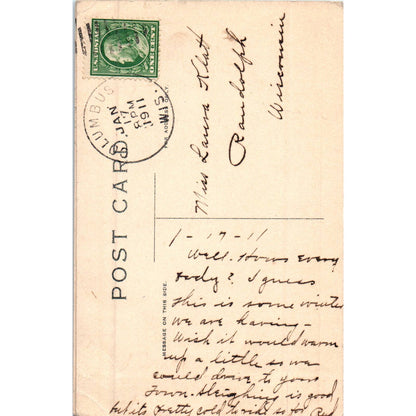 POST CARD
COLUMBUS
JAN
17
PM
1911
WIS.
Miss Laura Klat
Randolph
Wisconsin
MESSAGE ON THIS SIDE.
1-17-11
Well. Hows every
body? I guess
this is some winter
we are having-
Wish it would warm
up a little so we
could drive to your
Town. Sleighing is good
but its pretty cold to ride so far